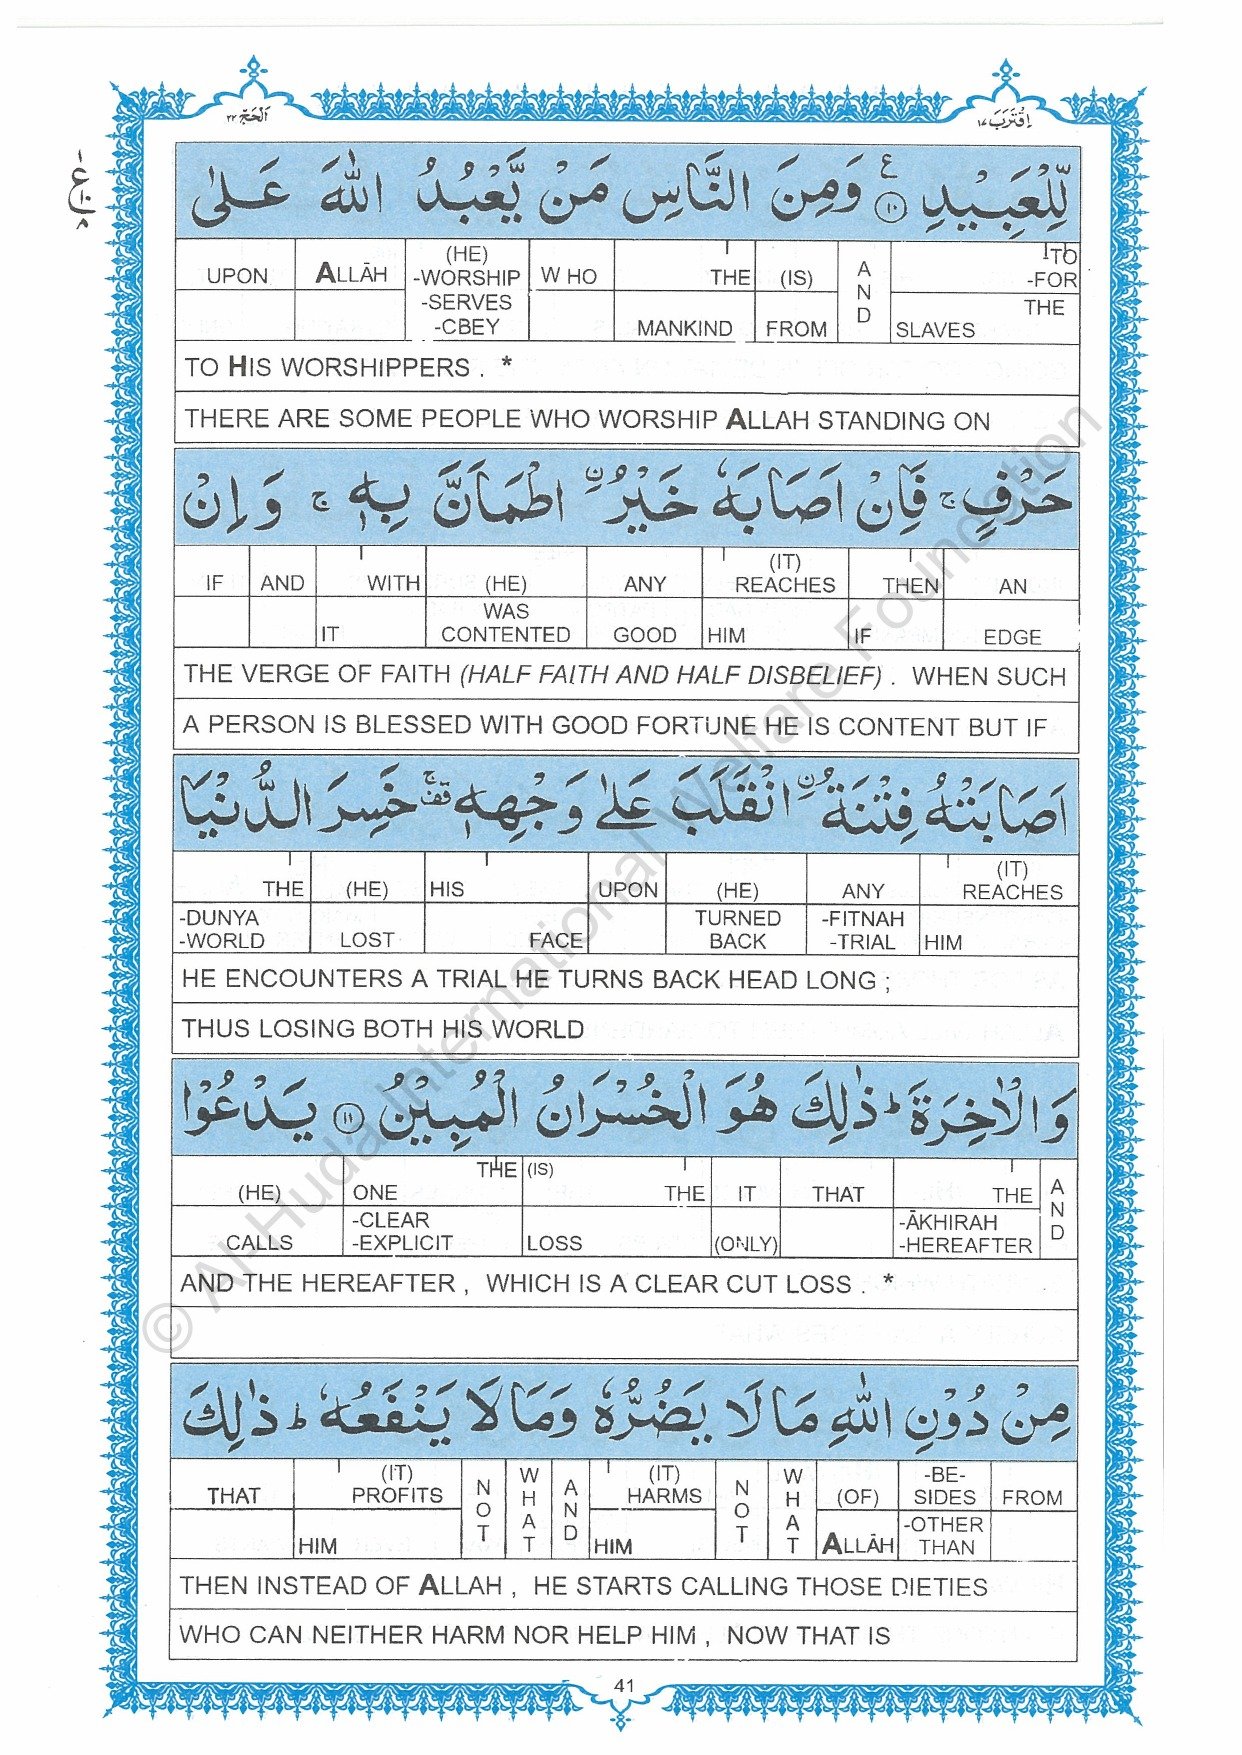 اَلْحَجّ ٢٢
اِقْتَرَبَ ١٧
١
ع
١٠
٨
لِّلْعَبِيْدِ ۝١٠ ع وَمِنَ النَّاسِ مَنْ يَّعْبُدُ اللّٰهَ عَلٰى
UPON ALLĀH (HE) -WORSHIP WHO THE (IS) AND TO -FOR
-SERVES -CBEY MANKIND FROM SLAVES THE
TO HIS WORSHIPPERS . *
THERE ARE SOME PEOPLE WHO WORSHIP ALLAH STANDING ON
حَرْفٍ ۚ فَاِنْ اَصَابَهٗ خَيْرُ ۨ اطْمَاَنَّ بِهٖ ۚ وَاِنْ
IF AND WITH (HE) ANY (IT) REACHES THEN AN
IT WAS CONTENTED GOOD HIM IF EDGE
THE VERGE OF FAITH (HALF FAITH AND HALF DISBELIEF) . WHEN SUCH
A PERSON IS BLESSED WITH GOOD FORTUNE HE IS CONTENT BUT IF
اَصَابَتْهُ فِتْنَةُ ۨ انْقَلَبَ عَلٰى وَجْهِهٖ ۚ قف خَسِرَ الدُّنْيَا
THE (HE) HIS UPON (HE) ANY (IT) REACHES
-DUNYA -WORLD LOST FACE TURNED BACK -FITNAH -TRIAL HIM
HE ENCOUNTERS A TRIAL HE TURNS BACK HEAD LONG ;
THUS LOSING BOTH HIS WORLD
وَالْاٰخِرَةَ ؕ ذٰلِكَ هُوَ الْخُسْرَانُ الْمُبِيْنُ ۝١١ يَدْعُوْا
(HE) THE ONE (IS) THE IT THAT THE AND
CALLS -CLEAR -EXPLICIT LOSS (ONLY) -ĀKHIRAH -HEREAFTER
AND THE HEREAFTER , WHICH IS A CLEAR CUT LOSS . *
مِنْ دُوْنِ اللّٰهِ مَا لَا يَضُرُّهٗ وَمَا لَا يَنْفَعُهٗ ؕ ذٰلِكَ
THAT (IT) PROFITS NOT WHAT AND (IT) HARMS NOT WHAT (OF) -BE- SIDES FROM
HIM HIM ALLĀH -OTHER THAN
THEN INSTEAD OF ALLAH , HE STARTS CALLING THOSE DIETIES
WHO CAN NEITHER HARM NOR HELP HIM , NOW THAT IS
41
© Al-Huda International Welfare Foundation